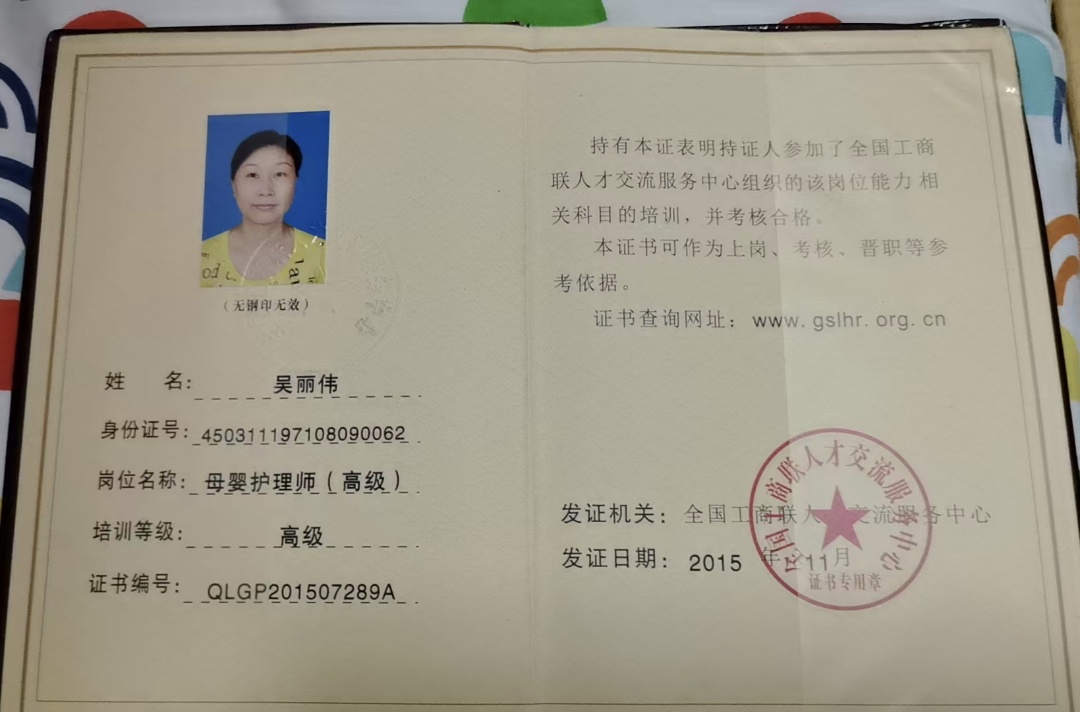 （无钢印无效）
姓 名: 吴丽伟
身份证号: 450311197108090062
岗位名称: 母婴护理师（高级）
培训等级: 高级
证书编号: QLGP201507289A
持有本证表明持证人参加了全国工商
联人才交流服务中心组织的该岗位能力相
关科目的培训，并考核合格。
本证书可作为上岗、考核、晋职等参
考依据。
证书查询网址：www.gslhr.org.cn
发证机关：全国工商联人才交流服务中心
发证日期：2015 年 11月
全国工商联人才交流服务中心
证书专用章